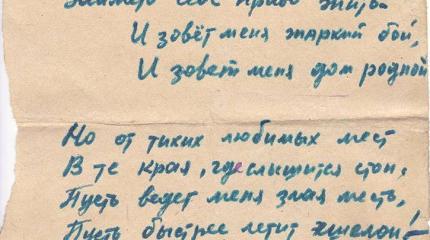 себе право жить.
И зовёт меня жаркий бой,
И зовет меня дом родной
Но от тихих любимых мест
В те края, где слышится стон,
Пусть ведет меня злая месть,
Пусть быстрее летит эшелон!